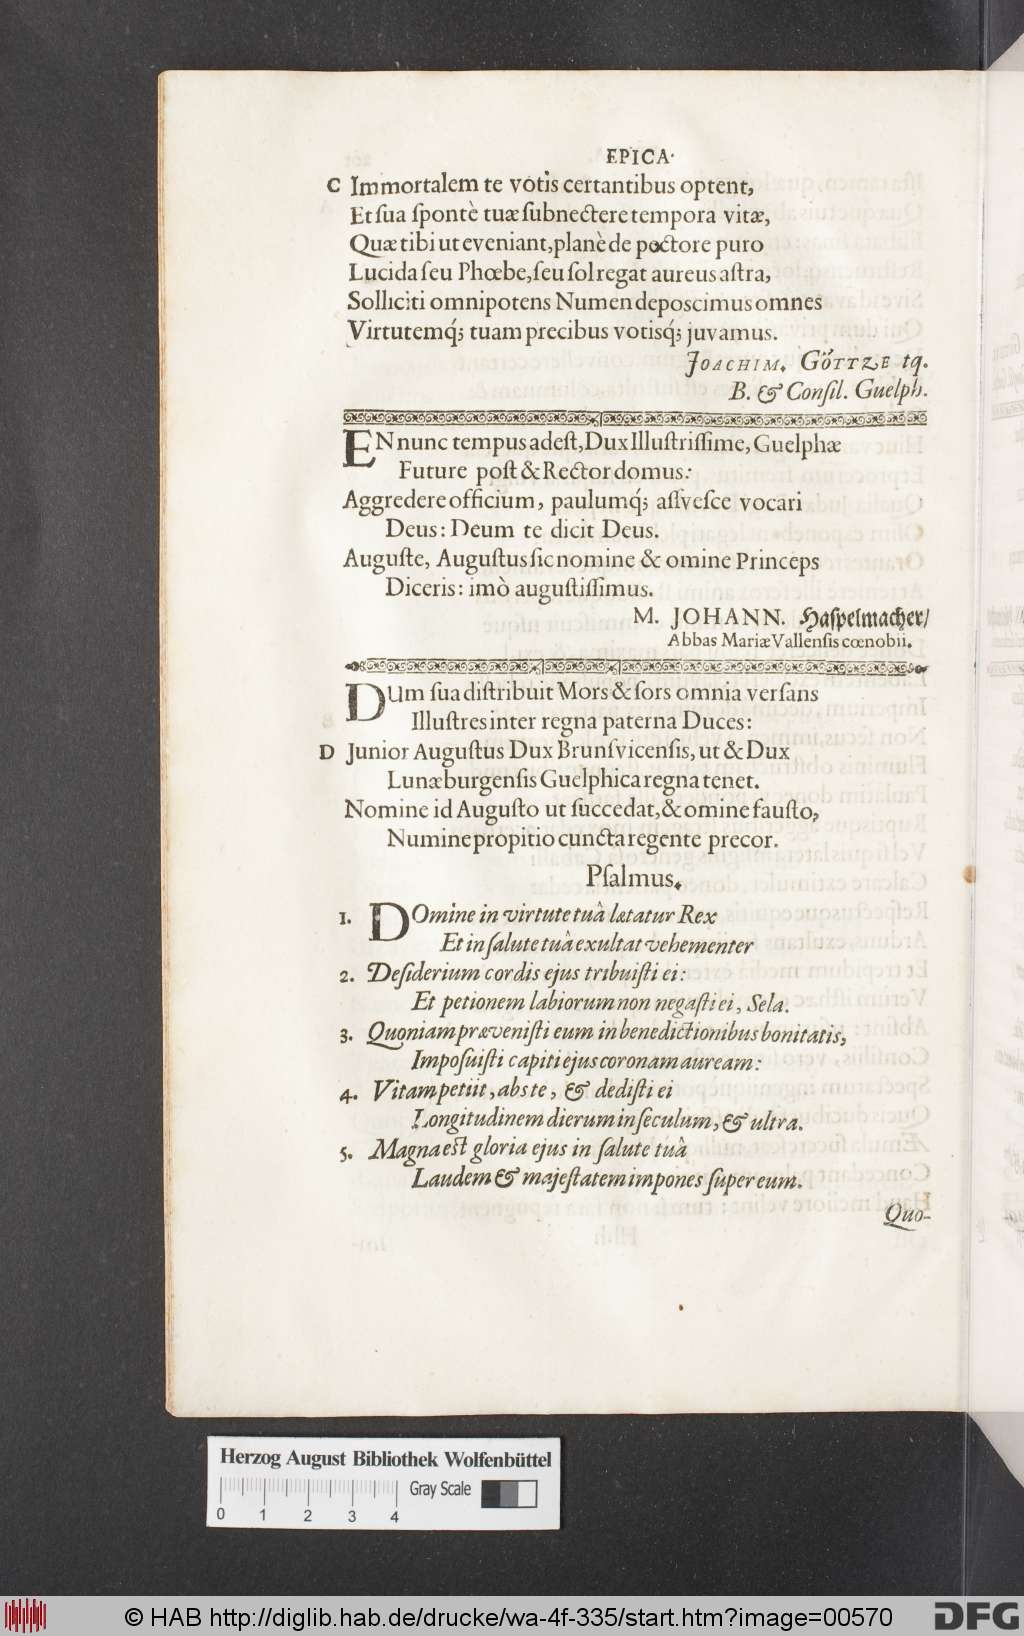 EPICA.
C Immortalem te votis certantibus optent,
Et sua spontè tuæ subnectere tempora vitæ,
Quæ tibi ut eveniant, planè de pectore puro
Lucida seu Phœbe, seu sol regat aureus astra,
Solliciti omnipotens Numen deposcimus omnes
Virtutemq́; tuam precibus votisq́; juvamus.
JOACHIM. GÖTTZE tq.
B. & Consil. Guelph.
EN nunc tempus adest, Dux Illustrissime, Guelphæ
Future post & Rector domus:
Aggredere officium, paulumq́; assvesce vocari
Deus: Deum te dicit Deus.
Auguste, Augustus sic nomine & omine Princeps
Diceris: imò augustissimus.
M. JOHANN. Haspelmacher/
Abbas Mariæ Vallensis cœnobii.
DUm sua distribuit Mors & sors omnia versans
Illustres inter regna paterna Duces:
D Junior Augustus Dux Brunsvicensis, ut & Dux
Lunæburgensis Guelphica regna tenet.
Nomine id Augusto ut succedat, & omine fausto,
Numine propitio cuncta regente precor.
Psalmus.
1. DOmine in virtute tuâ lætatur Rex
Et in salute tuâ exultat vehementer
2. Desiderium cordis ejus tribuisti ei:
Et petionem labiorum non negasti ei, Sela.
3. Quoniam prævenisti eum in benedictionibus bonitatis,
Imposuisti capiti ejus coronam auream:
4. Vitam petiit, abs te, & dedisti ei
Longitudinem dierum in seculum, & ultra.
5. Magna est gloria ejus in salute tuâ
Laudem & majestatem impones super eum.
Quo-
Herzog August Bibliothek Wolfenbüttel
Gray Scale
0 1 2 3 4
© HAB http://diglib.hab.de/drucke/wa-4f-335/start.htm?image=00570
DFG